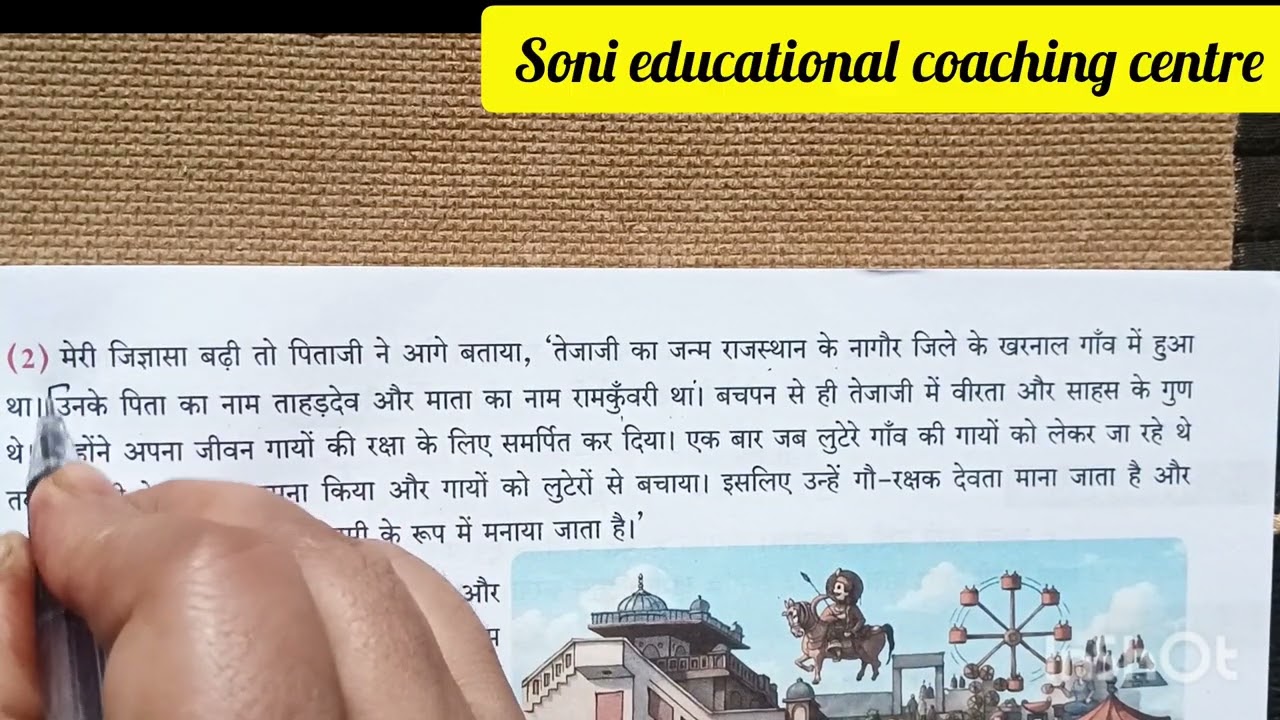 Soni educational coaching centre
(2) मेरी जिज्ञासा बढ़ी तो पिताजी ने आगे बताया, 'तेजाजी का जन्म राजस्थान के नागौर जिले के खरनाल गाँव में हुआ
था। उनके पिता का नाम ताहड़देव और माता का नाम रामकुँवरी था। बचपन से ही तेजाजी में वीरता और साहस के गुण
थे। अपना जीवन गायों की रक्षा के लिए समर्पित कर दिया। एक बार जब लुटेरे गाँव की गायों को लेकर जा रहे थे
किया और गायों को लुटेरों से बचाया। इसलिए उन्हें गौ-रक्षक देवता माना जाता है और
के रूप में मनाया जाता है।'
और